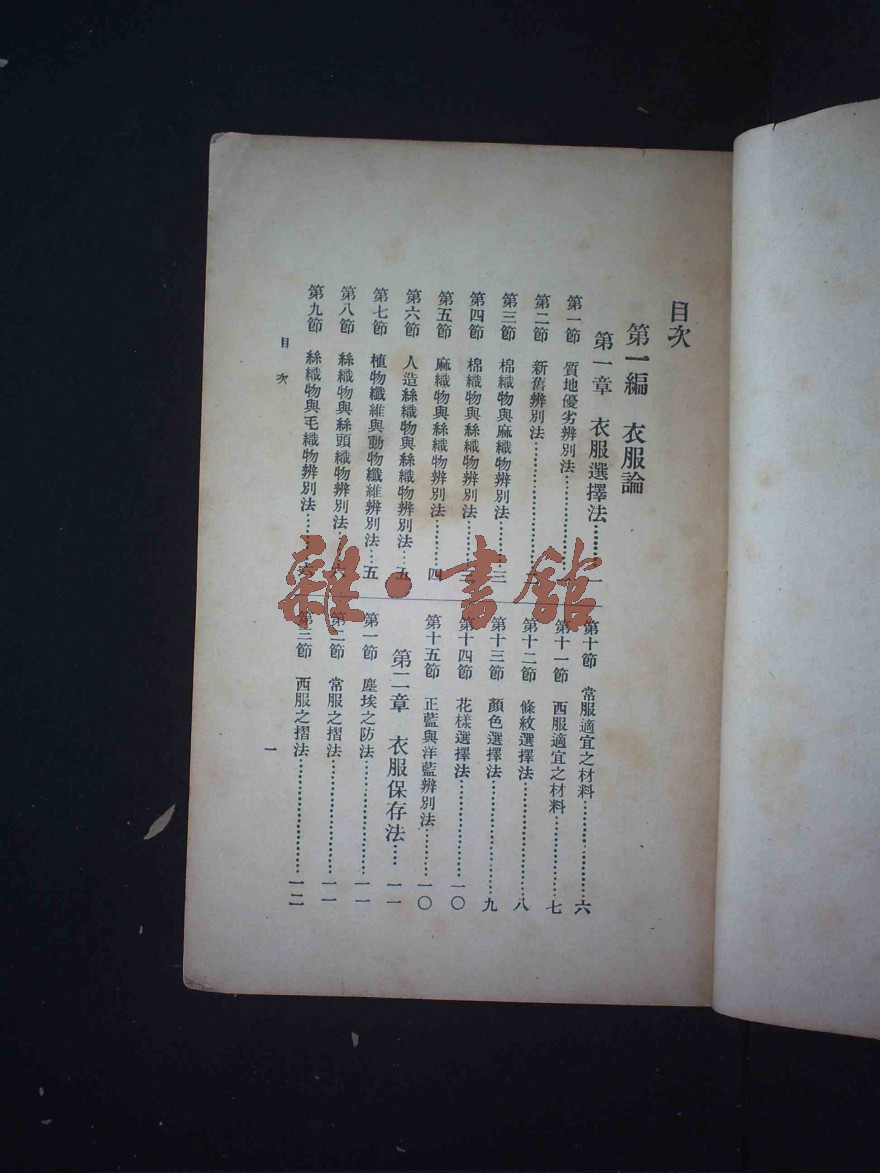 目次
第一編　衣服論
第一章　衣服選擇法………一
第一節　質地優劣辨別法…………
第二節　新舊辨別法…………
第三節　棉織物與麻織物辨別法……三
第四節　棉織物與絲織物辨別法……三
第五節　麻織物與絲織物辨別法……四
第六節　人造絲織物與絲織物辨別法…五
第七節　植物纖維與動物纖維辨別法…五
第八節　絲織物與絲頭織物辨別法……六
第九節　絲織物與毛織物辨別法……六
第十節　常服適宜之材料…………六
第十一節　西服適宜之材料…………七
第十二節　條紋選擇法…………八
第十三節　顏色選擇法…………九
第十四節　花樣選擇法…………一〇
第十五節　正藍與洋藍辨別法………一〇
第二章　衣服保存法……一一
第一節　塵埃之防法…………一一
第二節　常服之摺法…………一一
第三節　西服之摺法…………一二
目次
一
雜·書館